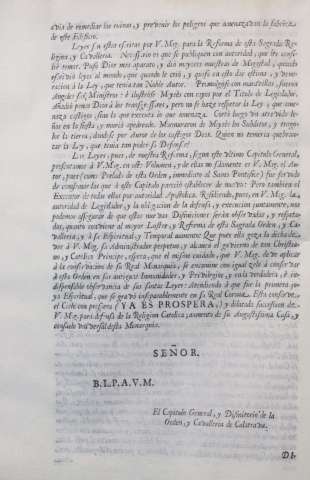 avia de remediar las ruinas, y prevenir los peligros que amenazavan la fabrica
de este Edificio.
Leyes son estas escritas por V. Mag. para la Reforma de esta Sagrada Re-
ligion y Cavalleria. Necessario es que se publiquen con autoridad, que les conci-
lie temor. Puso Dios mas aparato, y dió mayores muestras de Magestad, quando
escrivió leyes al mundo, que quando le crió, y quiso en esto dar estima, y vene-
racion à la Ley, que tenia tan Noble Autor. Promulgòse con marabillas, fueron
Angeles sus Ministros: è ilustròse Moysés con rayos por el Titulo de Legislador.
Añadió penas Dios à los transgressores, pero no se haze respetar la Ley, que ame-
naza castigos, sino la que executa lo que amenaza. Cortó luego un atrevido le-
ños en la fiesta, y murió apedreado. Murmuraron de Moysés los Subditos, y trago-
los la tierra, dandose por autor de los castigos Dios. Quien no temeria quebran-
tar la Ley, que tenia tan poderosa Defensa?
Las Leyes, pues, de nuestra Reforma, segun este ultimo Capitulo General,
presentamos à V. Mag. en este Volumen, y de ellas no solamente es V. Mag. el Au-
tor, pues (como Prelado de esta Orden, immediato al Santo Pontifice) fue servido
de confirmar las que à este Capitulo pareció establecer de nuevo: Pero tambien el
Executor de todas ellas por autoridad Apostolica. Residiendo, pues, en V. Mag. la
autoridad de Legislador, y la obligacion de la defensa, y execucion juntamente, nos
podemos assegurar de que estas nuevas Difiniciones seràn observadas, y respeta-
das, quanto conviene al mayor Lustre, y Reforma de esta Sagrada Orden, y Ca-
valleria, y à su Espiritual, y Temporal aumento. Que pues ella goza la dicha de
ver à V. Mag. su Administrador perpetuo, y alcançò el govierno de tan Christia-
no, y Catolico Principe, espera, que el mismo cuidado, que V. Mag. debe aplicar
à la conservacion de su Real Monarquia, se encamine con igual zelo à conservar
à esta Orden en sus antiguas Inmunidades, y Privilegios, y en la verdadera, è in-
dispensable observancia de sus santas Leyes: Atendiendo à que fue la primera jo-
ya Espiritual, que se gravó inseparablemente en su Real Corona. Esta conserve
el Cielo con prospera (YA ES PROSPERA) y dilatada succession de
V. Mag. para defensa de la Religion Catolica, aumento de su Augustissima Casa, y
consuelo universal de sta Monarquia.
SEÑOR.
B. L. P. A. V. M.
El Capitulo General, y Difinitorio de la
Orden, y Cavalleria de Calatrava.
DI-